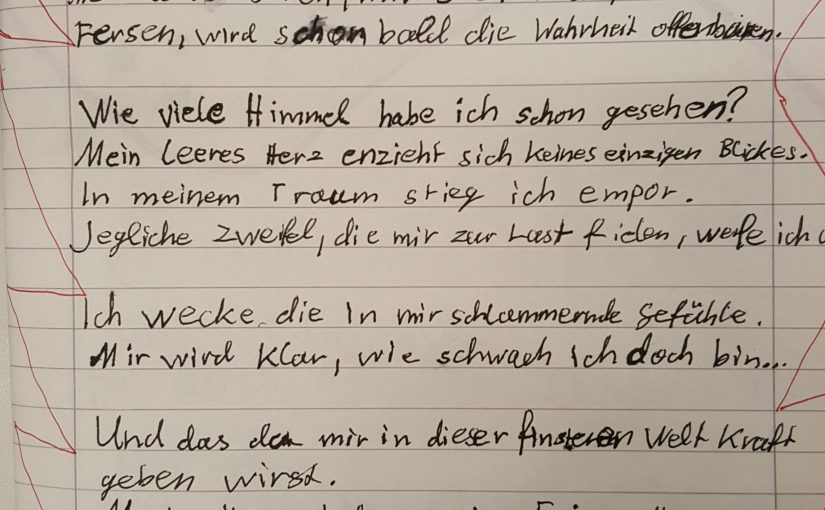 Fersen, wird schon bald die Wahrheit offenbaren.
Wie viele Himmel habe ich schon gesehen?
Mein leeres Herz enzieht sich keines einzigen Blickes.
In meinem Traum stieg ich empor.
Jegliche Zweifel, die mir zur Last fielen, werfe ich
Ich wecke die In mir schlummernde Gefühle.
Mir wird klar, wie schwach ich doch bin...
Und das du mir in dieser finsteren Welt Kraft
geben wirst.